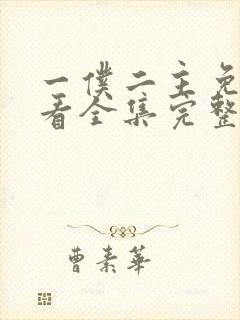 一僕二主免
看全集完整
曹素華